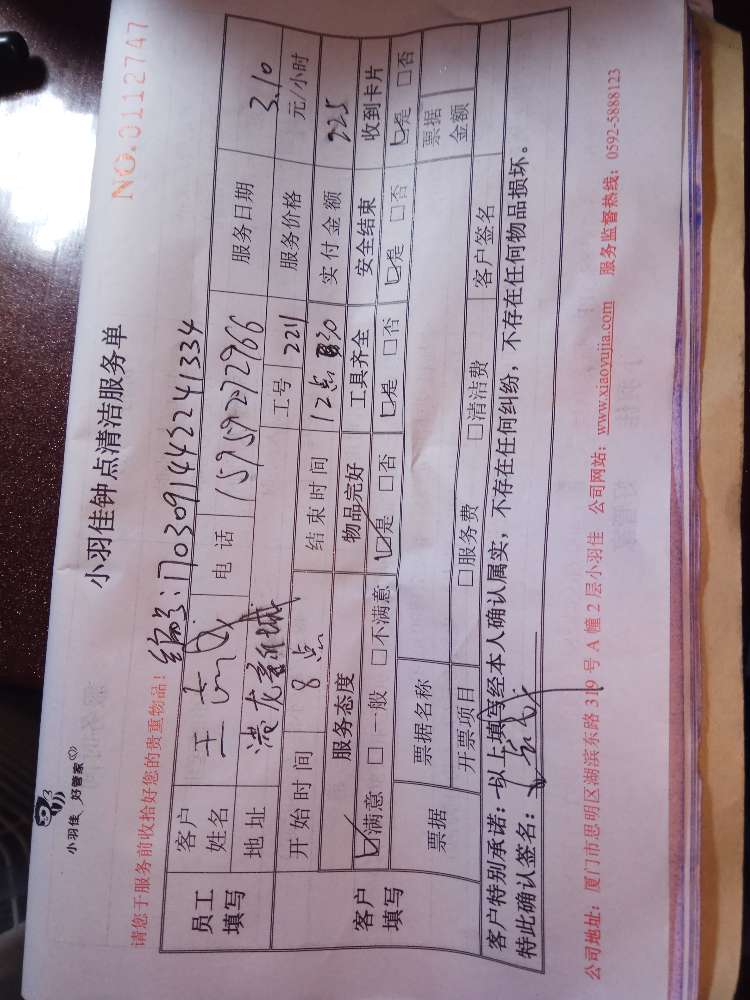 小羽佳 好管家
小羽佳钟点清洁服务单
NO.0112747
请您于服务前收拾好您的贵重物品！
编号:170309144224 1334
员工填写
客户姓名 王 电话 15959272966 服务日期 3.10
地址 满龙 城 工号 2211 服务价格 元/小时
客户填写
开始时间 8点 结束时间 12点30 实付金额 225
服务态度 物品完好 工具齐全 安全结束 收到卡片
☑满意 □一般 □不满意 ☑是 □否 ☑是 □否 ☑是 □否 ☑是 □否
票据 票据名称 票据金额
开票项目 □服务费 □清洁费 客户签名
客户特别承诺：以上填写经本人确认属实，不存在任何纠纷，不存在任何物品损坏。
特此确认签名：
公司地址：厦门市思明区湖滨东路319号A幢2层小羽佳 公司网站：www.xiaoyujia.com 服务监督热线：0592-5888123